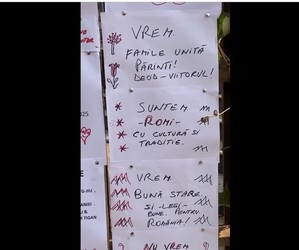 VREM.
FAMILE UNITĂ
PĂRINTI!
DECID-VIITORUL!
SUNTEM.
-ROMI-
CU CULTURĂ SI
TRADITIE.
VREM.
BUNĂ STARE.
SI-LEGI-
BUNE. PENTRU.
ROMÂNIA!
NU VREM
2025